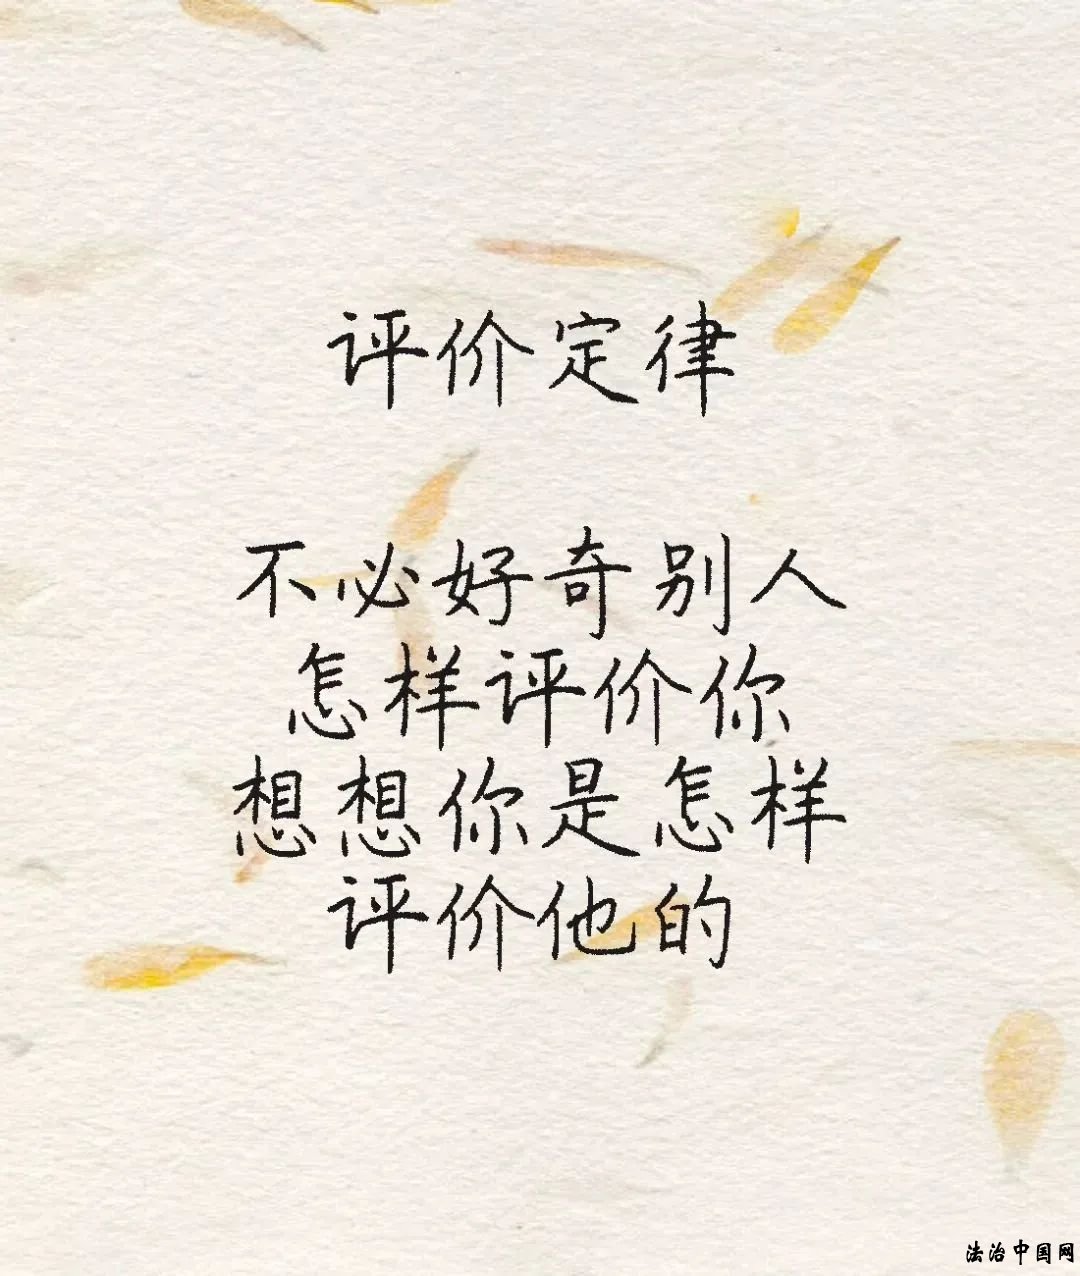 评价定律
不必好奇别人
怎样评价你
想想你是怎样
评价他的
法治中国网